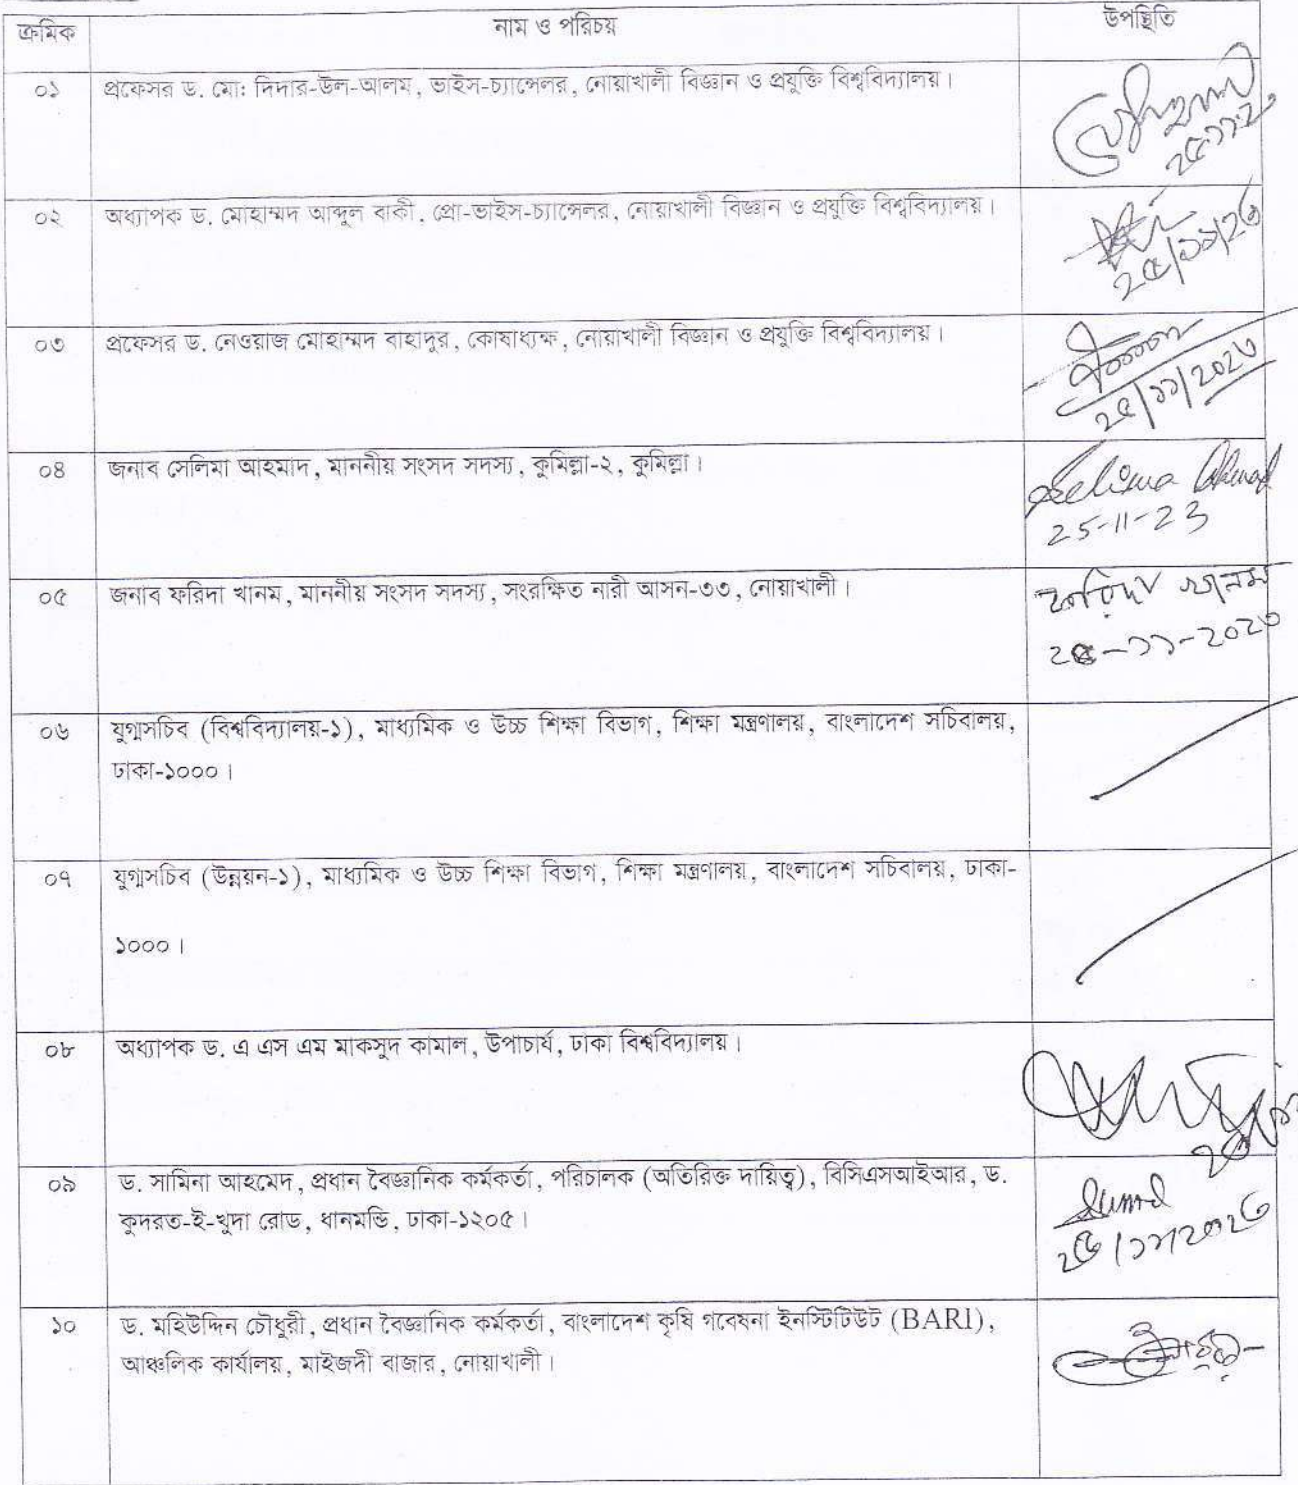 ক্রমিক নাম ও পরিচয় উপস্থিতি
০১ প্রফেসর ড. মো: দিদার-উল-আলম, ভাইস-চ্যান্সেলর, নোয়াখালী বিজ্ঞান ও প্রযুক্তি বিশ্ববিদ্যালয়।
০২ অধ্যাপক ড. মোহাম্মদ আব্দুল বাকী, প্রো-ভাইস-চ্যান্সেলর, নোয়াখালী বিজ্ঞান ও প্রযুক্তি বিশ্ববিদ্যালয়।
২৫/১১/২৩
০৩ প্রফেসর ড. নেওয়াজ মোহাম্মদ বাহাদুর, কোষাধ্যক্ষ, নোয়াখালী বিজ্ঞান ও প্রযুক্তি বিশ্ববিদ্যালয়।
২৫/১১/২০২৩
০৪ জনাব সেলিমা আহমাদ, মাননীয় সংসদ সদস্য, কুমিল্লা-২, কুমিল্লা। Selima Ahmad
25-11-23
০৫ জনাব ফরিদা খানম, মাননীয় সংসদ সদস্য, সংরক্ষিত নারী আসন-৩৩, নোয়াখালী। ফরিদা খানম
২৫-১১-২০২৩
০৬ যুগ্মসচিব (বিশ্ববিদ্যালয়-১), মাধ্যমিক ও উচ্চ শিক্ষা বিভাগ, শিক্ষা মন্ত্রণালয়, বাংলাদেশ সচিবালয়,
ঢাকা-১০০০।
০৭ যুগ্মসচিব (উন্নয়ন-১), মাধ্যমিক ও উচ্চ শিক্ষা বিভাগ, শিক্ষা মন্ত্রণালয়, বাংলাদেশ সচিবালয়, ঢাকা-
১০০০।
০৮ অধ্যাপক ড. এ এস এম মাকসুদ কামাল, উপাচার্য, ঢাকা বিশ্ববিদ্যালয়।
০৯ ড. সামিনা আহমেদ, প্রধান বৈজ্ঞানিক কর্মকর্তা, পরিচালক (অতিরিক্ত দায়িত্ব), বিসিএসআইআর, ড.
কুদরত-ই-খুদা রোড, ধানমন্ডি, ঢাকা-১২০৫।
২৫/১১/২০২৩
১০ ড. মহিউদ্দিন চৌধুরী, প্রধান বৈজ্ঞানিক কর্মকর্তা, বাংলাদেশ কৃষি গবেষনা ইনস্টিটিউট (BARI),
আঞ্চলিক কার্যালয়, মাইজদী বাজার, নোয়াখালী।